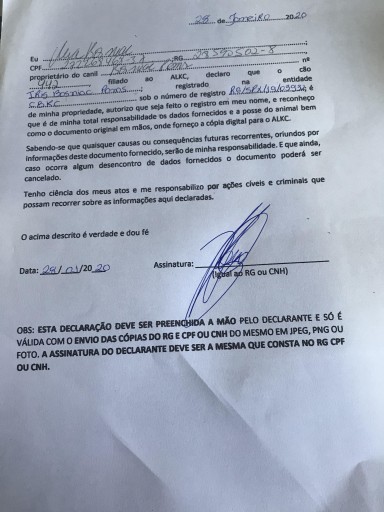 28 de Janeiro 2020
Eu
CPF ;RG 23590502-8
proprietário do canil nº
942 filiado ao ALKC, declaro que o cão
registrado na entidade
sob o número de registro é
de minha propriedade, autorizo que seja feito o registro em meu nome, e reconheço
que é de minha total responsabilidade os dados fornecidos e a posse do animal bem
como o documento original em mãos, onde forneço a cópia digital para o ALKC.
Sabendo-se que quaisquer causas ou consequências futuras recorrentes, oriundos por
informações deste documento fornecido, serão de minha responsabilidade. E que ainda,
caso ocorra algum desencontro de dados fornecidos o documento poderá ser
cancelado.
Tenho ciência dos meus atos e me responsabilizo por ações cíveis e criminais que
possam recorrer sobre as informações aqui declaradas.
O acima descrito é verdade e dou fé
Data: 28/01/2020 Assinatura:
(Igual ao RG ou CNH)
OBS: ESTA DECLARAÇÃO DEVE SER PREENCHIDA A MÃO PELO DECLARANTE E SÓ É
VÁLIDA COM O ENVIO DAS CÓPIAS DO RG E CPF OU CNH DO MESMO EM JPEG, PNG OU
FOTO. A ASSINATURA DO DECLARANTE DEVE SER A MESMA QUE CONSTA NO RG CPF
OU CNH.